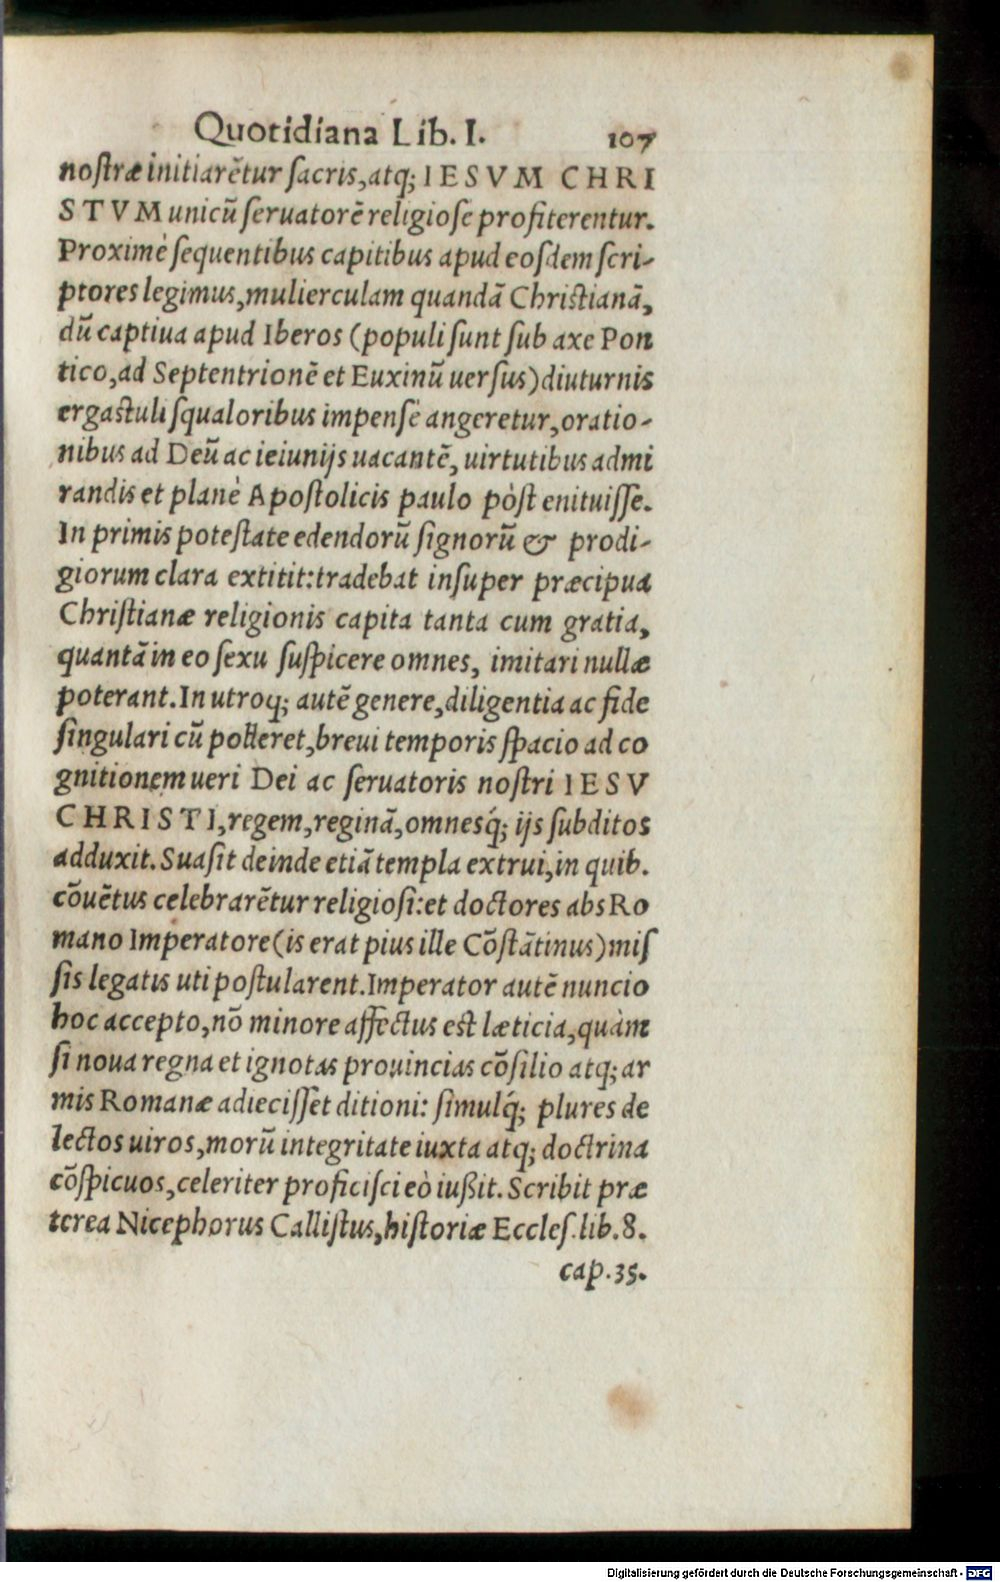 Quotidiana Lib. I. 107
nostræ initiarẽtur sacris, atq; IESVM CHRI
STVM unicũ seruatorẽ religiosè profiterentur.
Proximè sequentibus capitibus apud eosdem scri-
ptores legimus, mulierculam quandã Christianã,
dũ captiua apud Iberos (populi sunt sub axe Pon
tico, ad Septentrionẽ et Euxinũ uersus) diuturnis
ergastuli squaloribus impensè angeretur, oratio-
nibus ad Deũ ac ieiunijs uacantẽ, uirtutibus admi
randis et planè Apostolicis paulo pòst enituisse.
In primis potestate edendorũ signorũ & prodi-
giorum clara extitit: tradebat insuper præcipua
Christianæ religionis capita tanta cum gratia,
quantã in eo sexu suspicere omnes, imitari nullæ
poterant. In utroq; autẽ genere, diligentia ac fide
singulari cũ polleret, breui temporis spacio ad co
gnitionem ueri Dei ac seruatoris nostri IESV
CHRISTI, regem, reginã, omnesq́; ijs subditos
adduxit. Suasit deinde etiã templa extrui, in quib.
cõuẽtus celebrarẽtur religiosi: et doctores abs Ro
mano Imperatore (is erat pius ille Cõstãtinus) mis
sis legatis uti postularent. Imperator autẽ nuncio
hoc accepto, nõ minore affectus est læticia, quàm
si noua regna et ignotas prouincias cõsilio atq; ar
mis Romanæ adiecisset ditioni: simulq́; plures de
lectos uiros, morũ integritate iuxta atq; doctrina
cõspicuos, celeriter proficisci eò iußit. Scribit præ
terea Nicephorus Callistus, historiæ Eccles. lib. 8.
cap. 35.
Digitalisierung gefördert durch die Deutsche Forschungsgemeinschaft - DFG